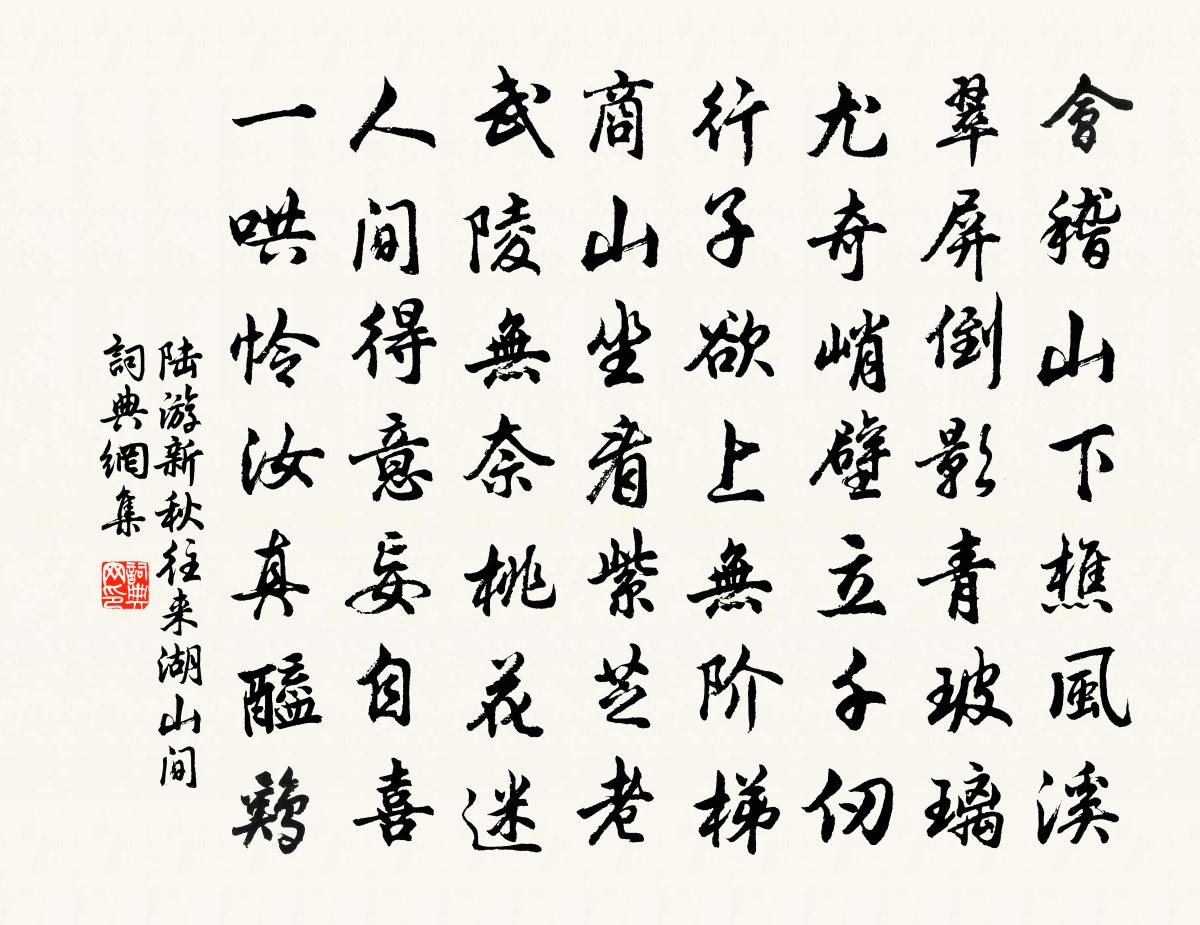 會稽山下樵風溪
翠屏倒影青玻璃
尤奇峭壁立千仞
行子欲上無阶梯
商山坐看紫芝老
武陵無奈桃花迷
人间得意妄自喜
一哄怜汝真醯鶏
陆游新秋往来湖山间
詞典網集
詞典网印